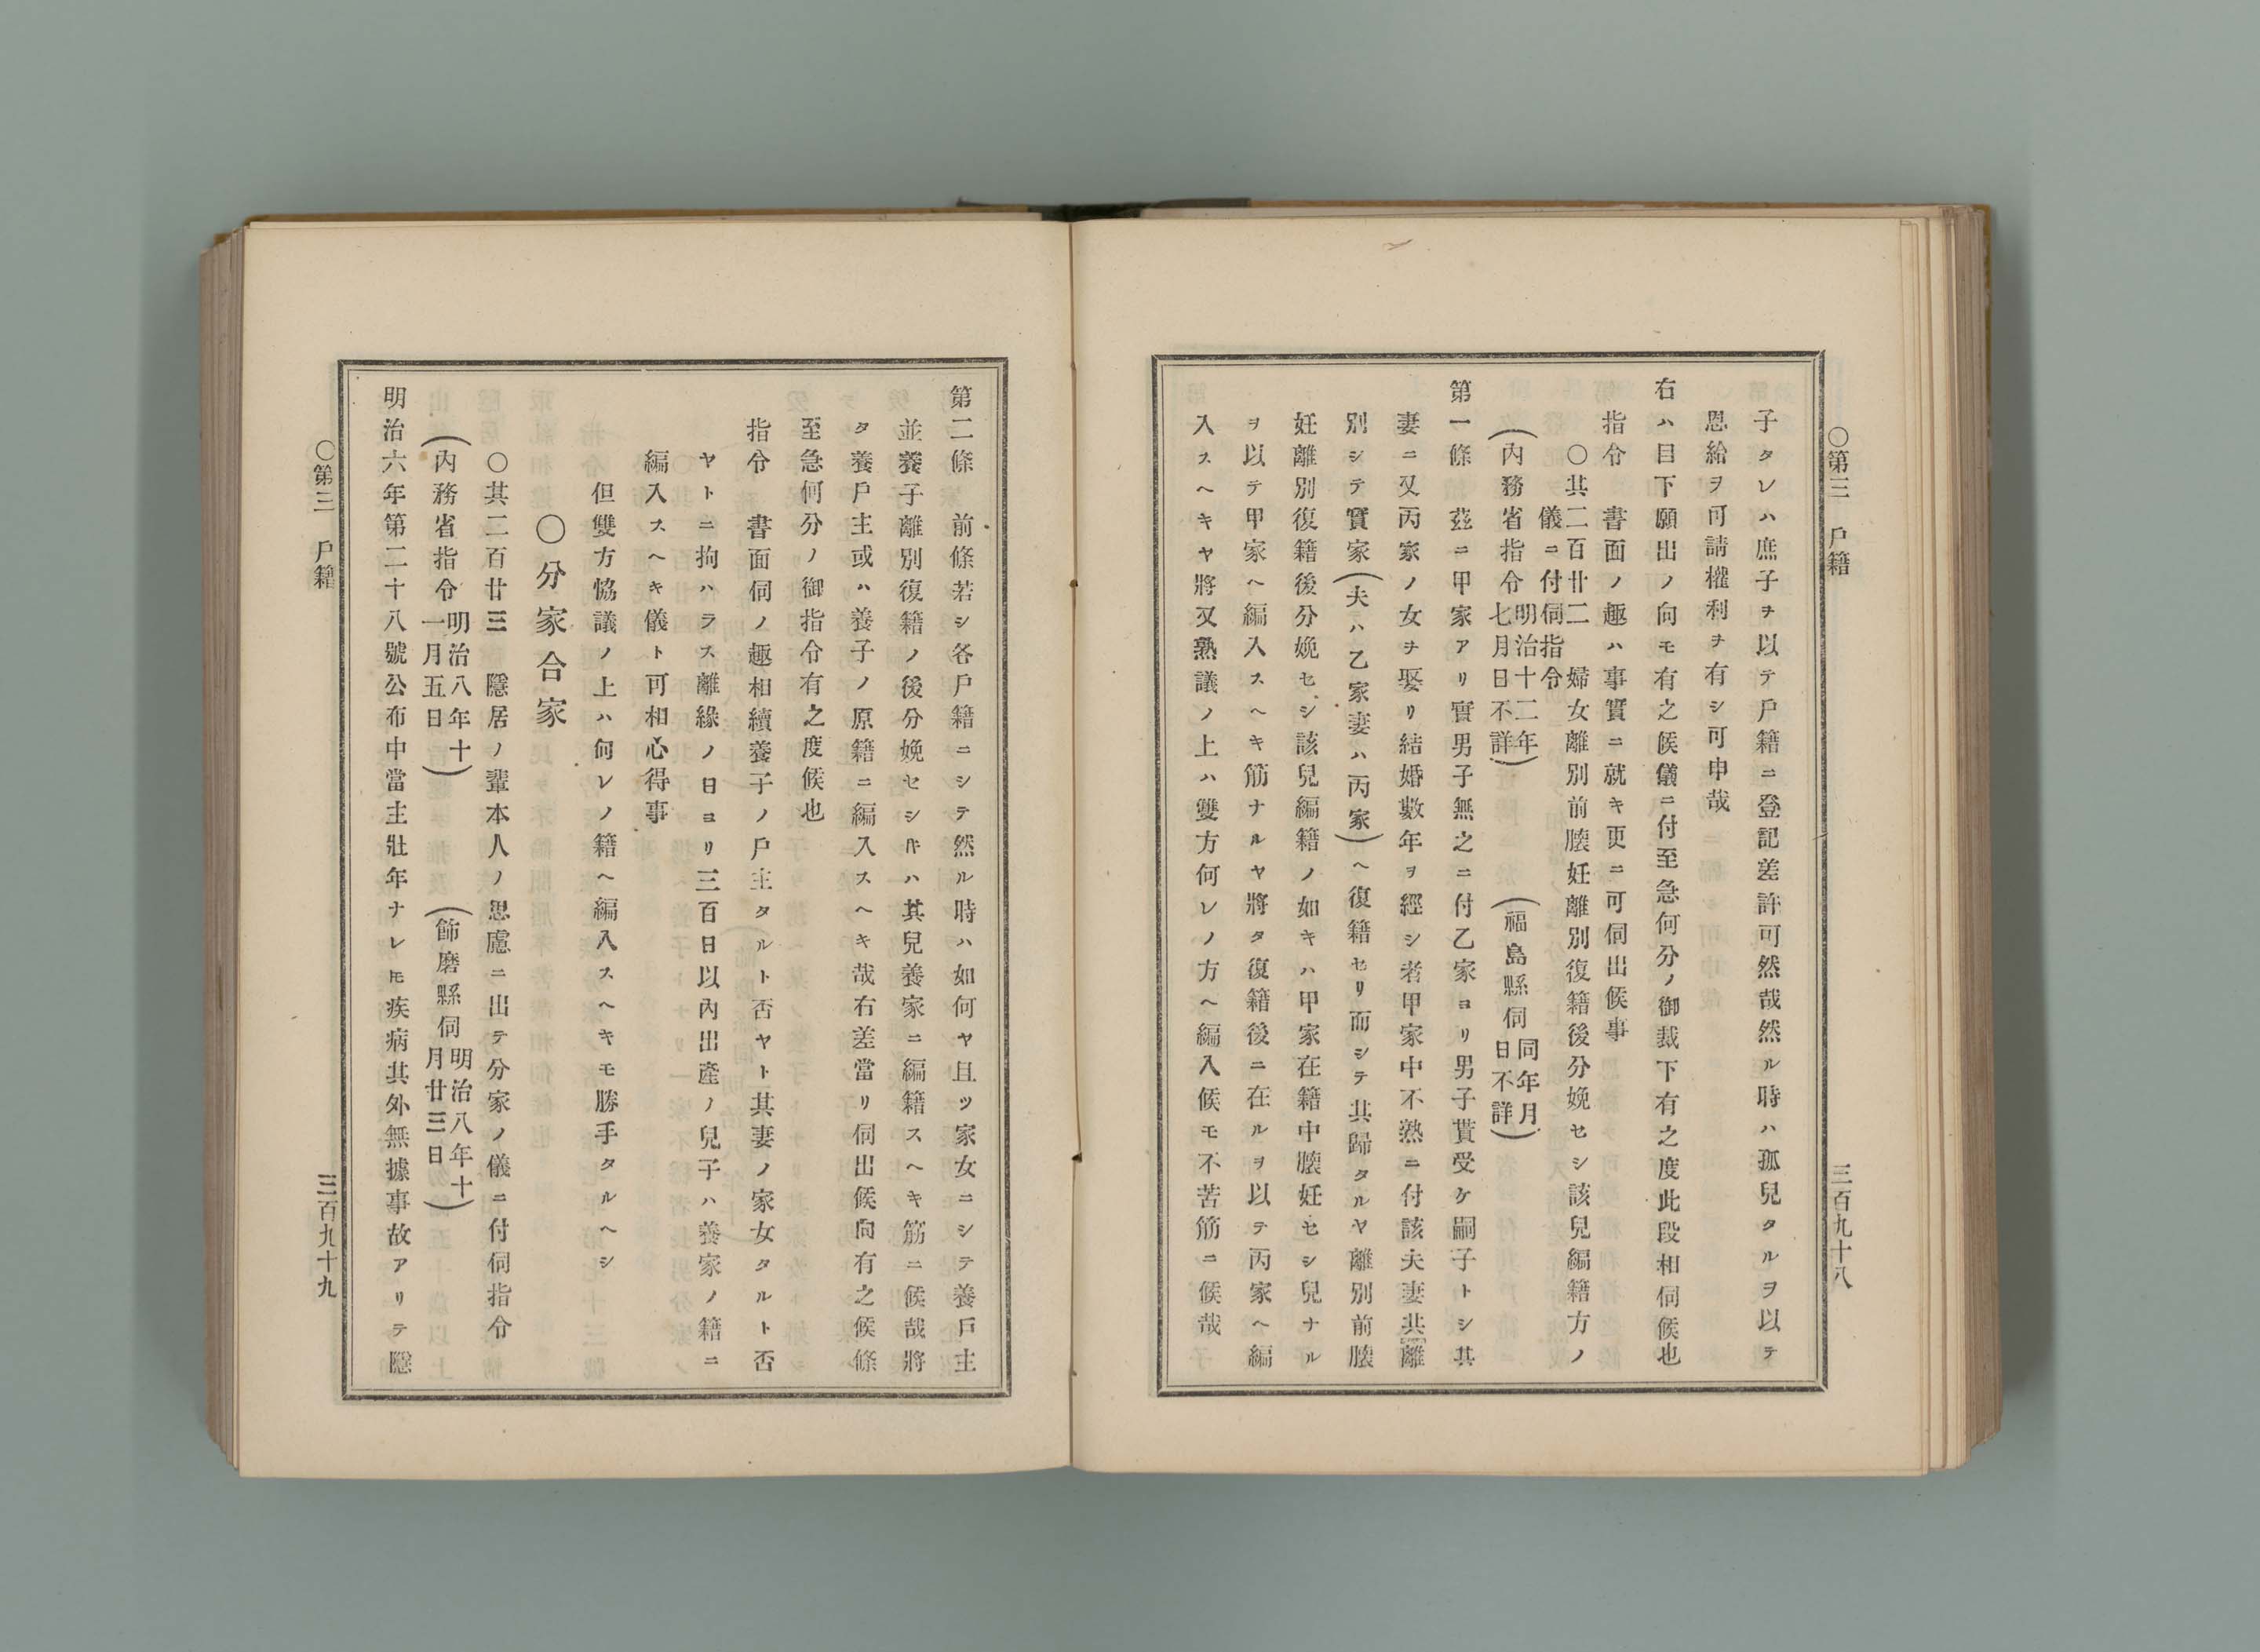 〇第三　戶籍　三百九十八
子タレハ庶子ヲ以テ戶籍ニ登記差許可然哉然ル時ハ孤兒タルヲ以テ
恩給ヲ可請權利ヲ有シ可申哉
右ハ目下願出ノ向モ有之候儀ニ付至急何分ノ御裁下有之度此段相伺候也
指令　書面ノ趣ハ事實ニ就キ更ニ可伺出候事
〇其二百廿二　婦女離別前懷妊離別復籍後分娩セシ該兒編籍方ノ
儀ニ付伺指令
（內務省指令明治十二年七月日不詳）　（福島縣伺同年月日不詳）
第一條　茲ニ甲家アリ實男子無之ニ付乙家ヨリ男子貰受ケ嗣子トシ其
妻ニ又丙家ノ女ヲ娶リ結婚數年ヲ經シ者甲家中不熟ニ付該夫妻共離
別シテ實家（夫ハ乙家妻ハ丙家）ヘ復籍セリ而シテ其歸タルヤ離別前懷
妊離別復籍後分娩セシ該兒編籍ノ如キハ甲家在籍中懷妊セシ兒ナル
ヲ以テ甲家ヘ編入スヘキ筋ナルヤ將タ復籍後ニ在ルヲ以テ丙家ヘ編
入スヘキヤ將又熟議ノ上ハ雙方何レノ方ヘ編入候モ不苦筋ニ候哉
第二條　前條若シ各戶籍ニシテ然ル時ハ如何ヤ且ツ家女ニシテ養戶主
並養子離別復籍ノ後分娩セシ𪜈ハ其兒養家ニ編籍スヘキ筋ニ候哉將
タ養戶主或ハ養子ノ原籍ニ編入スヘキ哉右差當リ伺出候向有之候條
至急何分ノ御指令有之度候也
指令　書面伺ノ趣相續養子ノ戶主タルト否ヤト其妻ノ家女タルト否
ヤトニ拘ハラス離緣ノ日ヨリ三百日以內出產ノ兒子ハ養家ノ籍ニ
編入スヘキ儀ト可相心得事
但雙方恊議ノ上ハ何レノ籍ヘ編入スヘキモ勝手タルヘシ
〇分家合家
〇其二百廿三　隱居ノ輩本人ノ思慮ニ出テ分家ノ儀ニ付伺指令
（內務省指令明治八年十一月五日）　（飾磨縣伺明治八年十月廿三日）
明治六年第二十八號公布中當主壯年ナレ𪜈疾病其外無據事故アリテ隱
〇第三　戶籍　三百九十九